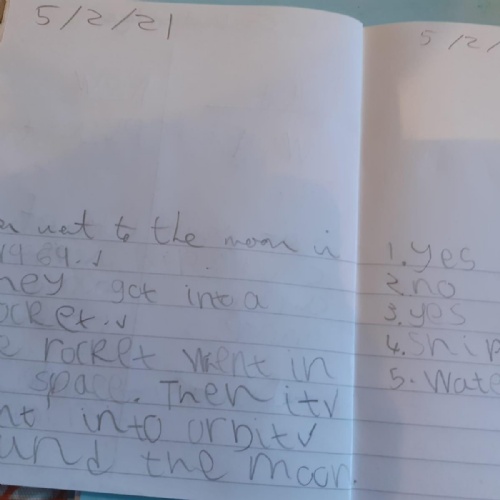 5/2/21
to the moon in
1969.
hey got into a
ocket.
e rocket went in
space. Then it
nt into orbit
und the moon.
5/2/
1. yes
2. no
3. yes
4. Ship
5. Wate